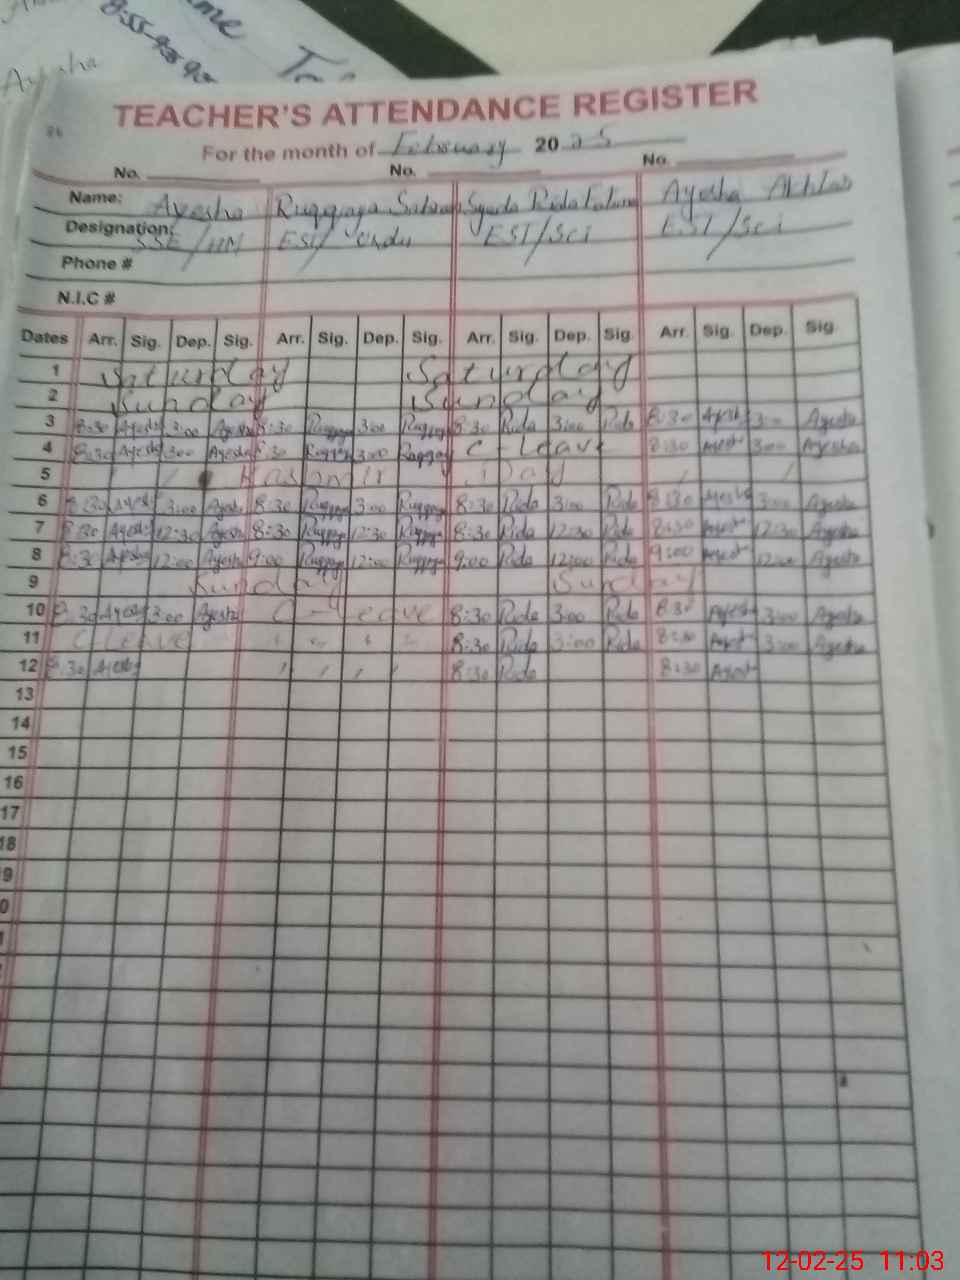 Ayesha
TEACHER'S ATTENDANCE REGISTER
For the month of February 2025
No. No. No.
Name: Ayesha Ruqqaya Syeda Rida Ayesha
Designation: SSE/HM EST/Urdu EST/Sci EST/Sci
Phone #
N.I.C #
Dates Arr. Sig. Dep. Sig. Arr. Sig. Dep. Sig. Arr. Sig. Dep. Sig. Arr. Sig. Dep. Sig.
1 Saturday Saturday
2 Sunday Sunday
3 8:30 Ayesha 3:00 Ayesha 8:30 Ruqqaya 3:00 Ruqqaya 8:30 Rida 3:00 Rida 8:30 Ayesha 3:00 Ayesha
4 8:30 Ayesha 3:00 Ayesha 8:30 Ruqqaya 3:00 Ruqqaya C-leave 8:30 Ayesha 3:00 Ayesha
5 Kashmir Day
6 8:30 Ayesha 3:00 Ayesha 8:30 Ruqqaya 3:00 Ruqqaya 8:30 Rida 3:00 Rida 8:30 Ayesha 3:00 Ayesha
7 8:30 Ayesha 12:30 Ayesha 8:30 Ruqqaya 12:30 Ruqqaya 8:30 Rida 12:30 Rida 8:30 Ayesha 12:30 Ayesha
8 8:30 Ayesha 12:00 Ayesha 9:00 Ruqqaya 12:00 Ruqqaya 9:00 Rida 12:00 Rida 9:00 Ayesha 12:00 Ayesha
9 Sunday Sunday
10 8:30 Ayesha 3:00 Ayesha C-leave 8:30 Rida 3:00 Rida 8:30 Ayesha 3:00 Ayesha
11 C leave " " " " 8:30 Rida 3:00 Rida 8:30 Ayesha 3:00 Ayesha
12 8:30 Ayesha 8:30 Rida 8:30 Ayesha
13
14
15
16
17
18
9
0
12-02-25 11:03